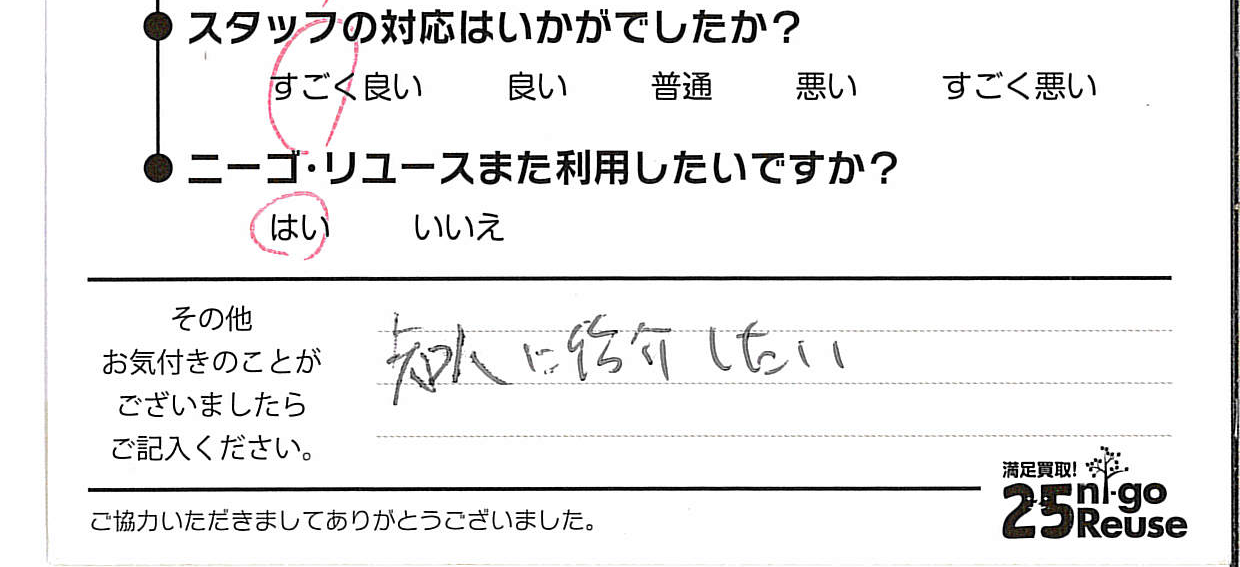 スタッフの対応はいかがでしたか?
すごく良い 良い 普通 悪い すごく悪い
ニーゴ・リユースまた利用したいですか?
はい いいえ
その他
お気付きのことが
ございましたら
ご記入ください。
知人に紹介したい
満足買取!
25 ni-go
Reuse
ご協力いただきましてありがとうございました。